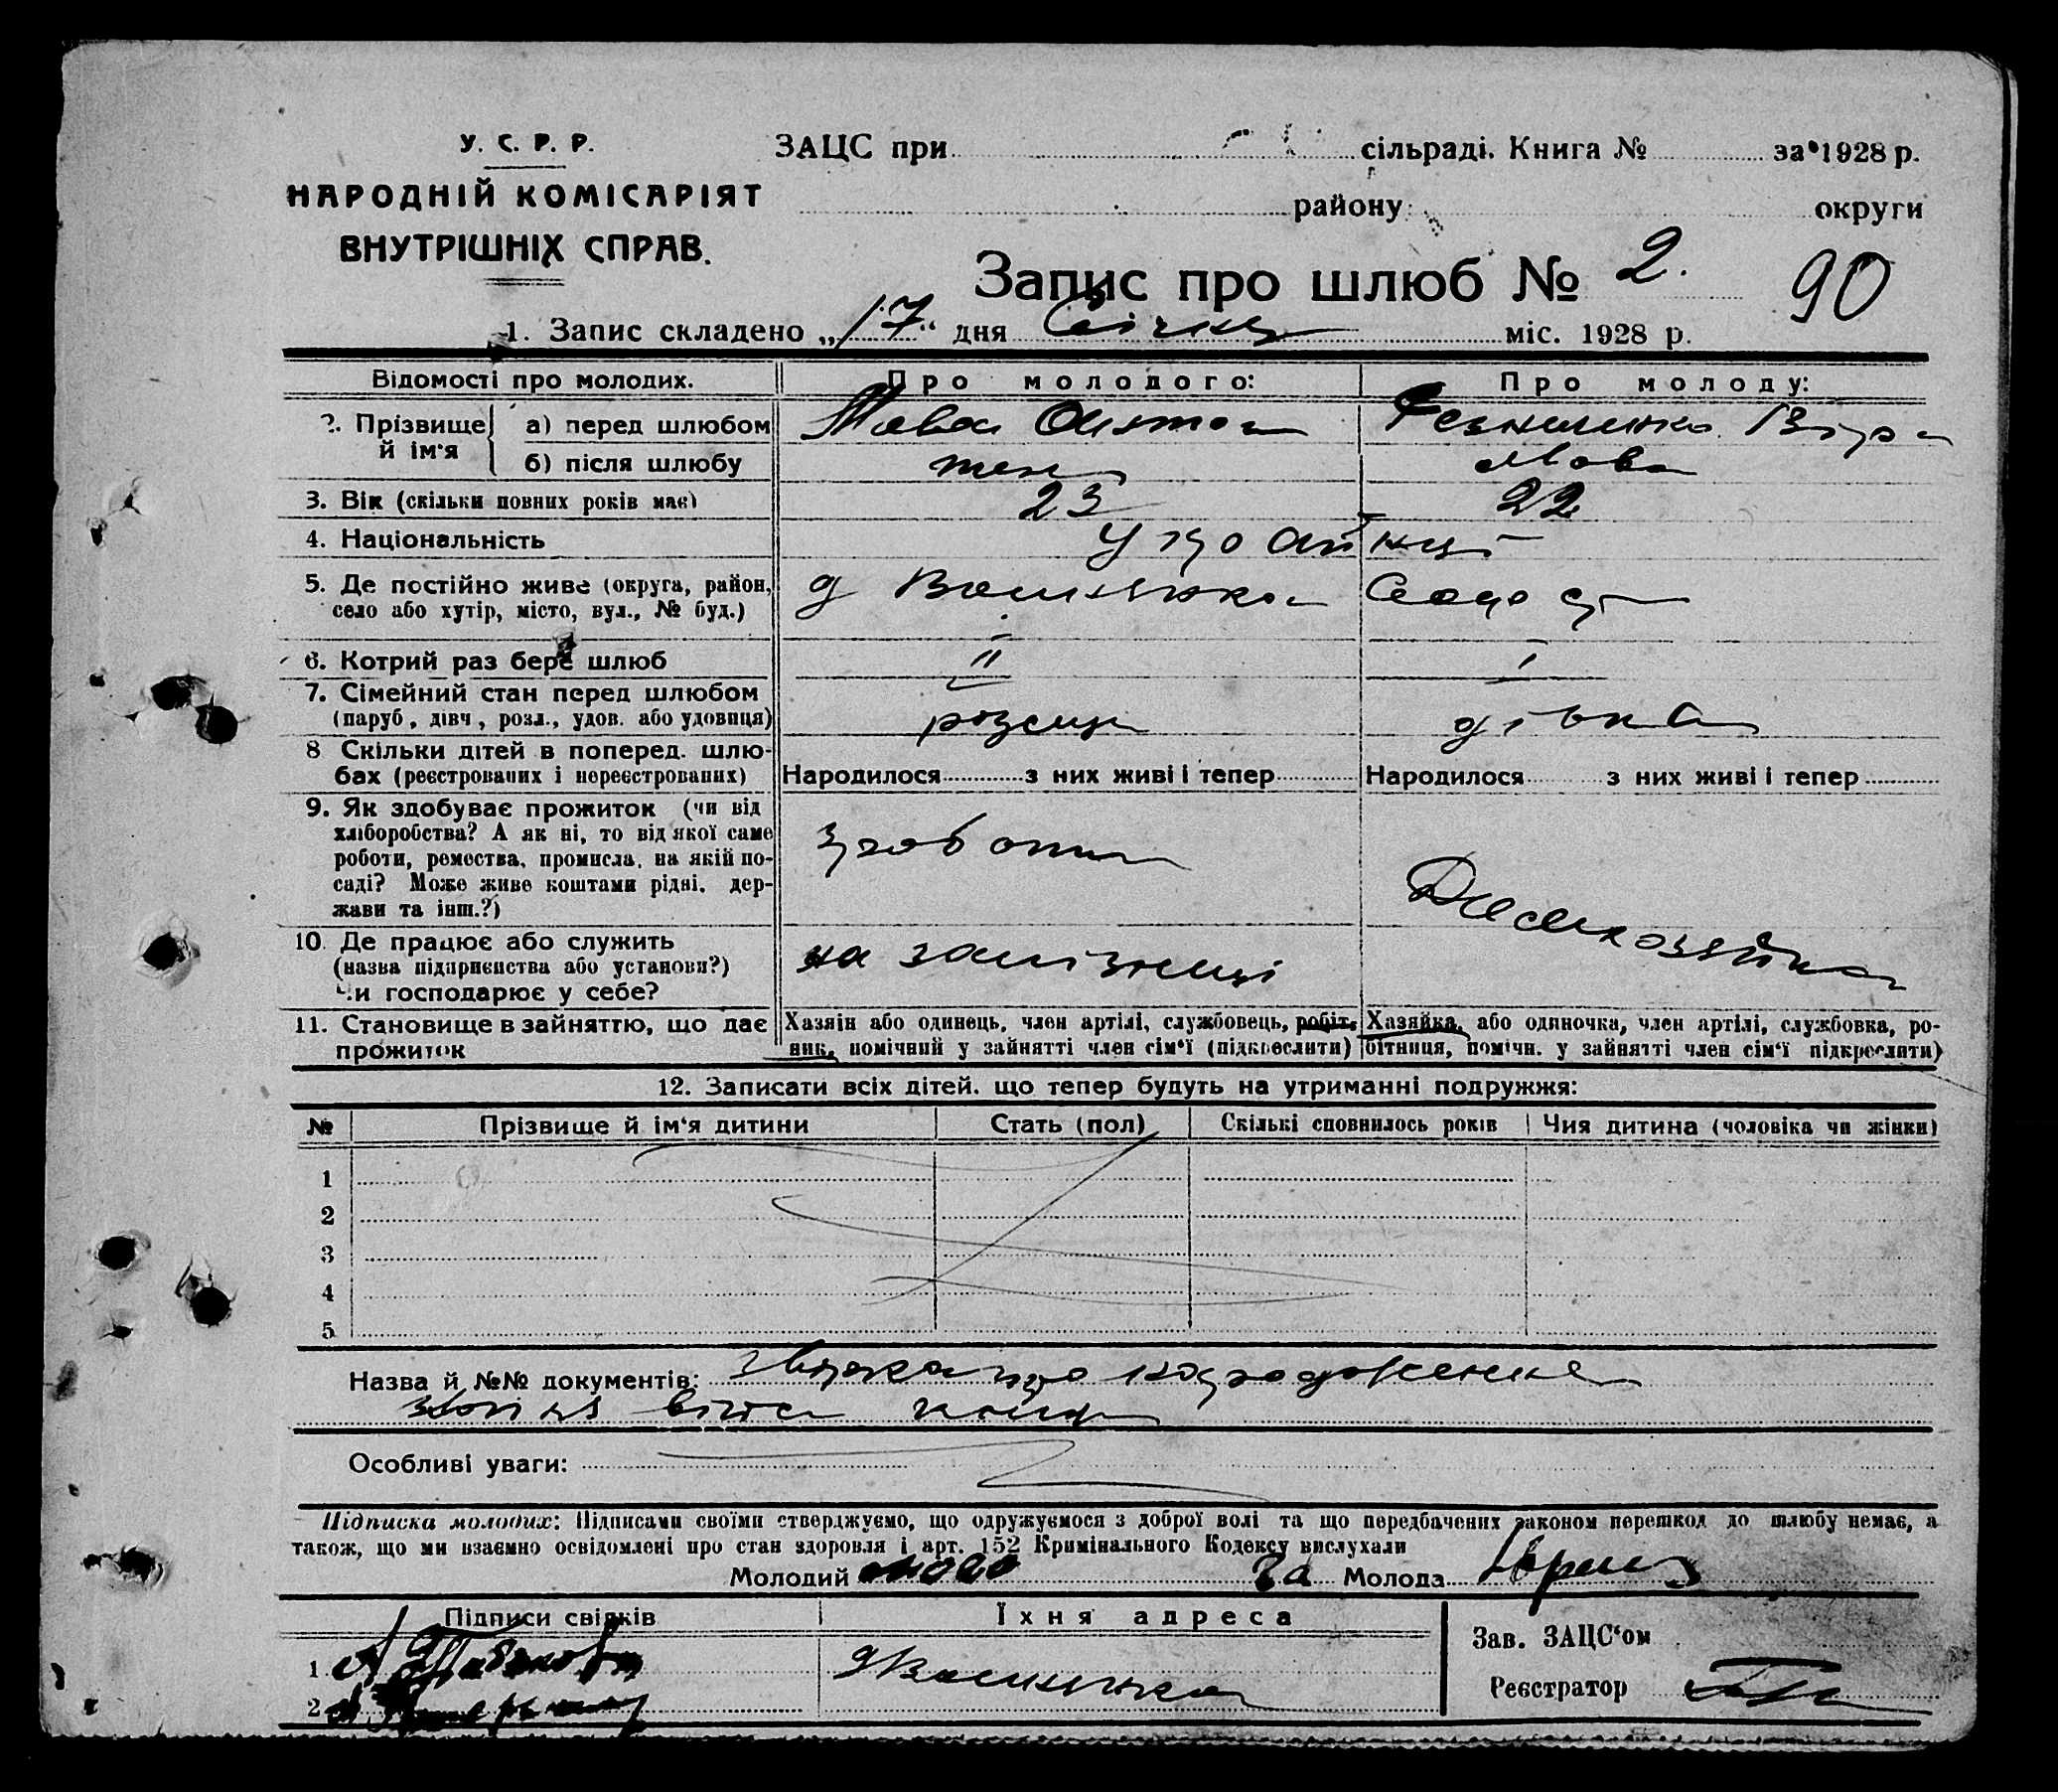 У. С. Р. Р.
НАРОДНІЙ КОМІСАРІЯТ
ВНУТРІШНІХ СПРАВ.
ЗАЦС при сільраді. Книга № за 1928 р.
району округи
Запис про шлюб № 2. 90
1. Запис складено „17“ дня Січня міс. 1928 р.
Відомості про молодих. Про молодого: Про молоду:
2. Прізвище й ім'я
а) перед шлюбом Мова Антон Віра
б) після шлюбу теж Мова
3. Вік (скільки повних років має) 23 22
4. Національність Українці
5. Де постійно живе (округа, район, село або хутір, місто, вул., № буд.)
6. Котрий раз бере шлюб II I
7. Сімейний стан перед шлюбом
(паруб, дівч, розл., удов. або удовиця) дівка
8 Скільки дітей в поперед. шлю-
бах (реєстрованих і нереєстрованих) Народилося з них живі і тепер Народилося з них живі і тепер
9. Як здобуває прожиток (чи від
хліборобства? А як ні, то від якої саме
роботи, ремества, промисла, на якій по-
саді? Може живе коштами рідні, дер-
жави та інш.?)
зроботи
Домохозяйка
10. Де працює або служить
(назва підприємства або установи?)
Чи господарює у себе?
на залізниці
11. Становище в зайняттю, що дає
прожиток
Хазяін або одинець, член артілі, службовець, робіт-
ник, помічний у зайнятті член сім'ї (підкреслити)
Хазяйка, або одиночка, член артілі, службовка, ро-
бітниця, помічн. у зайнятті член сім'ї підкреслити)
12. Записати всіх дітей, що тепер будуть на утриманні подружжя:
№ Прізвище й ім'я дитини Стать (пол) Скількі сповнилось років Чия дитина (чоловіка чи жінки)
1
2
3
4
5
Назва й №№ документів:
Особливі уваги:
Підписка молодих: Підписами своїми стверджуємо, що одружуємося з доброї волі та що передбачених законом перешкод до шлюбу немає, а
також, що ми взаємно освідомлені про стан здоровля і арт. 152 Кримінального Кодексу вислухали
Молодий Мова За Молода
Підписи свідків Їхня адреса
Зав. ЗАЦС'ом
1.
Реєстратор
2